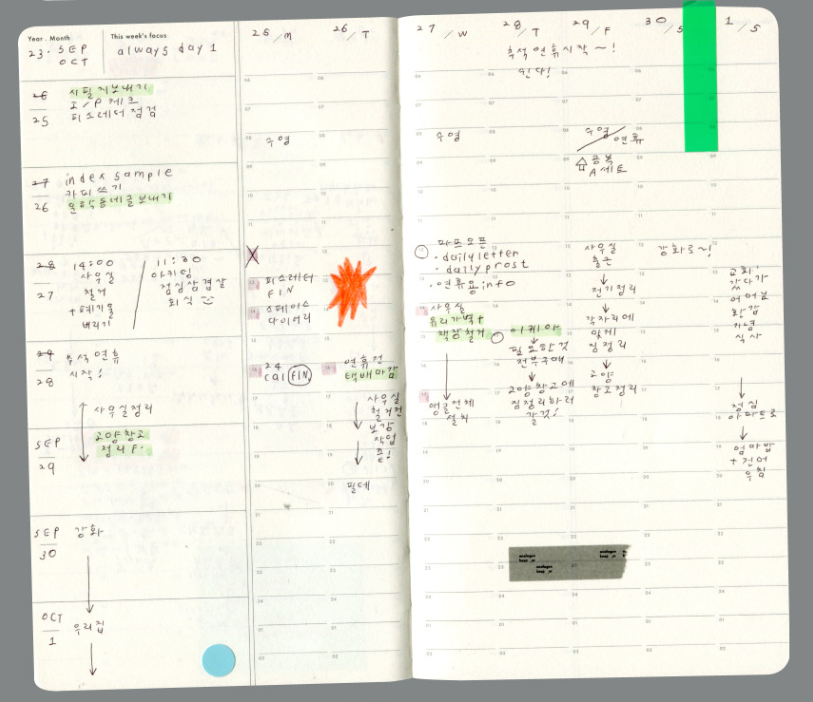 Year . Month
This week's focus
23. SEP
OCT
always day 1
26
25
샤필지보내기
I/P 체크
피스레터 점검
27
26
index sample
카피쓰기
28
27
14:00
사무실
철거
+폐기물
버리기
11:30
아키팀
점심삼겹살
회식
29
28
추석 연휴
시작!
사무실정리
고양창고
정리
SEP
29
SEP
30
강화
OCT
1
우리집
25 / M
수영
피스레터
FIN
스페이스
다이어리
24
cal FIN.
26 / T
연휴전
택배마감
사무실
철거전
보강
작업
끝!
필테
27 / W
수영
· daily letter
· daily prost
· 연휴용 info
사무실
유리가벽+
책장철거
앵글언체
설치
28 / T
추석 연휴 시작~!
인다!
이케아
필요한것
전우구매
고양창고에
짐정리하러
갈것!
29 / F
수영
연휴
공복
A세트
사무실
출근
전기정리
각자리에
맞게
짐정리
고양
창고정리
30 / S
강화로~!
1 / S
교회
갔다가
어머님
환갑
가평
식사
점심
아파트로
엄마밥
+전어
무침